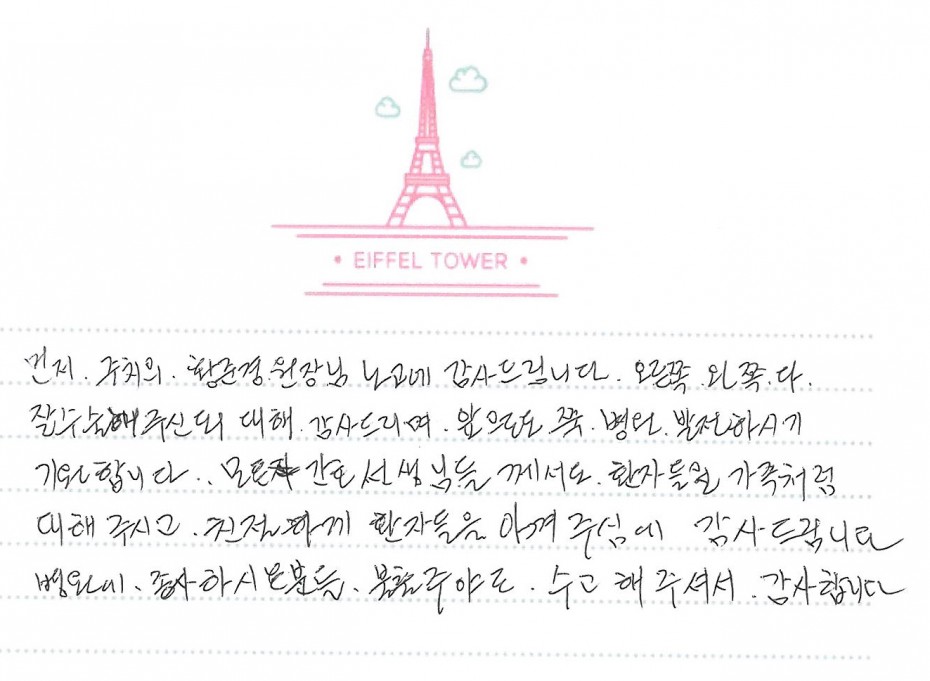 • EIFFEL TOWER •
먼저. 주치의. 황준경.원장님 노고에 감사드립니다. 오른쪽.왼쪽.다.
잘수술해주신데 대해.감사드리며.앞으로도 쭉.병원.발전하시기
기원합니다.. 모든 간호선생님들 께서도.환자들을 가족처럼
대해주시고.친절하게 환자들을 아껴주심에 감사드립니다
병원에.종사하시는분들.불철주야로.수고해주셔서.감사합니다